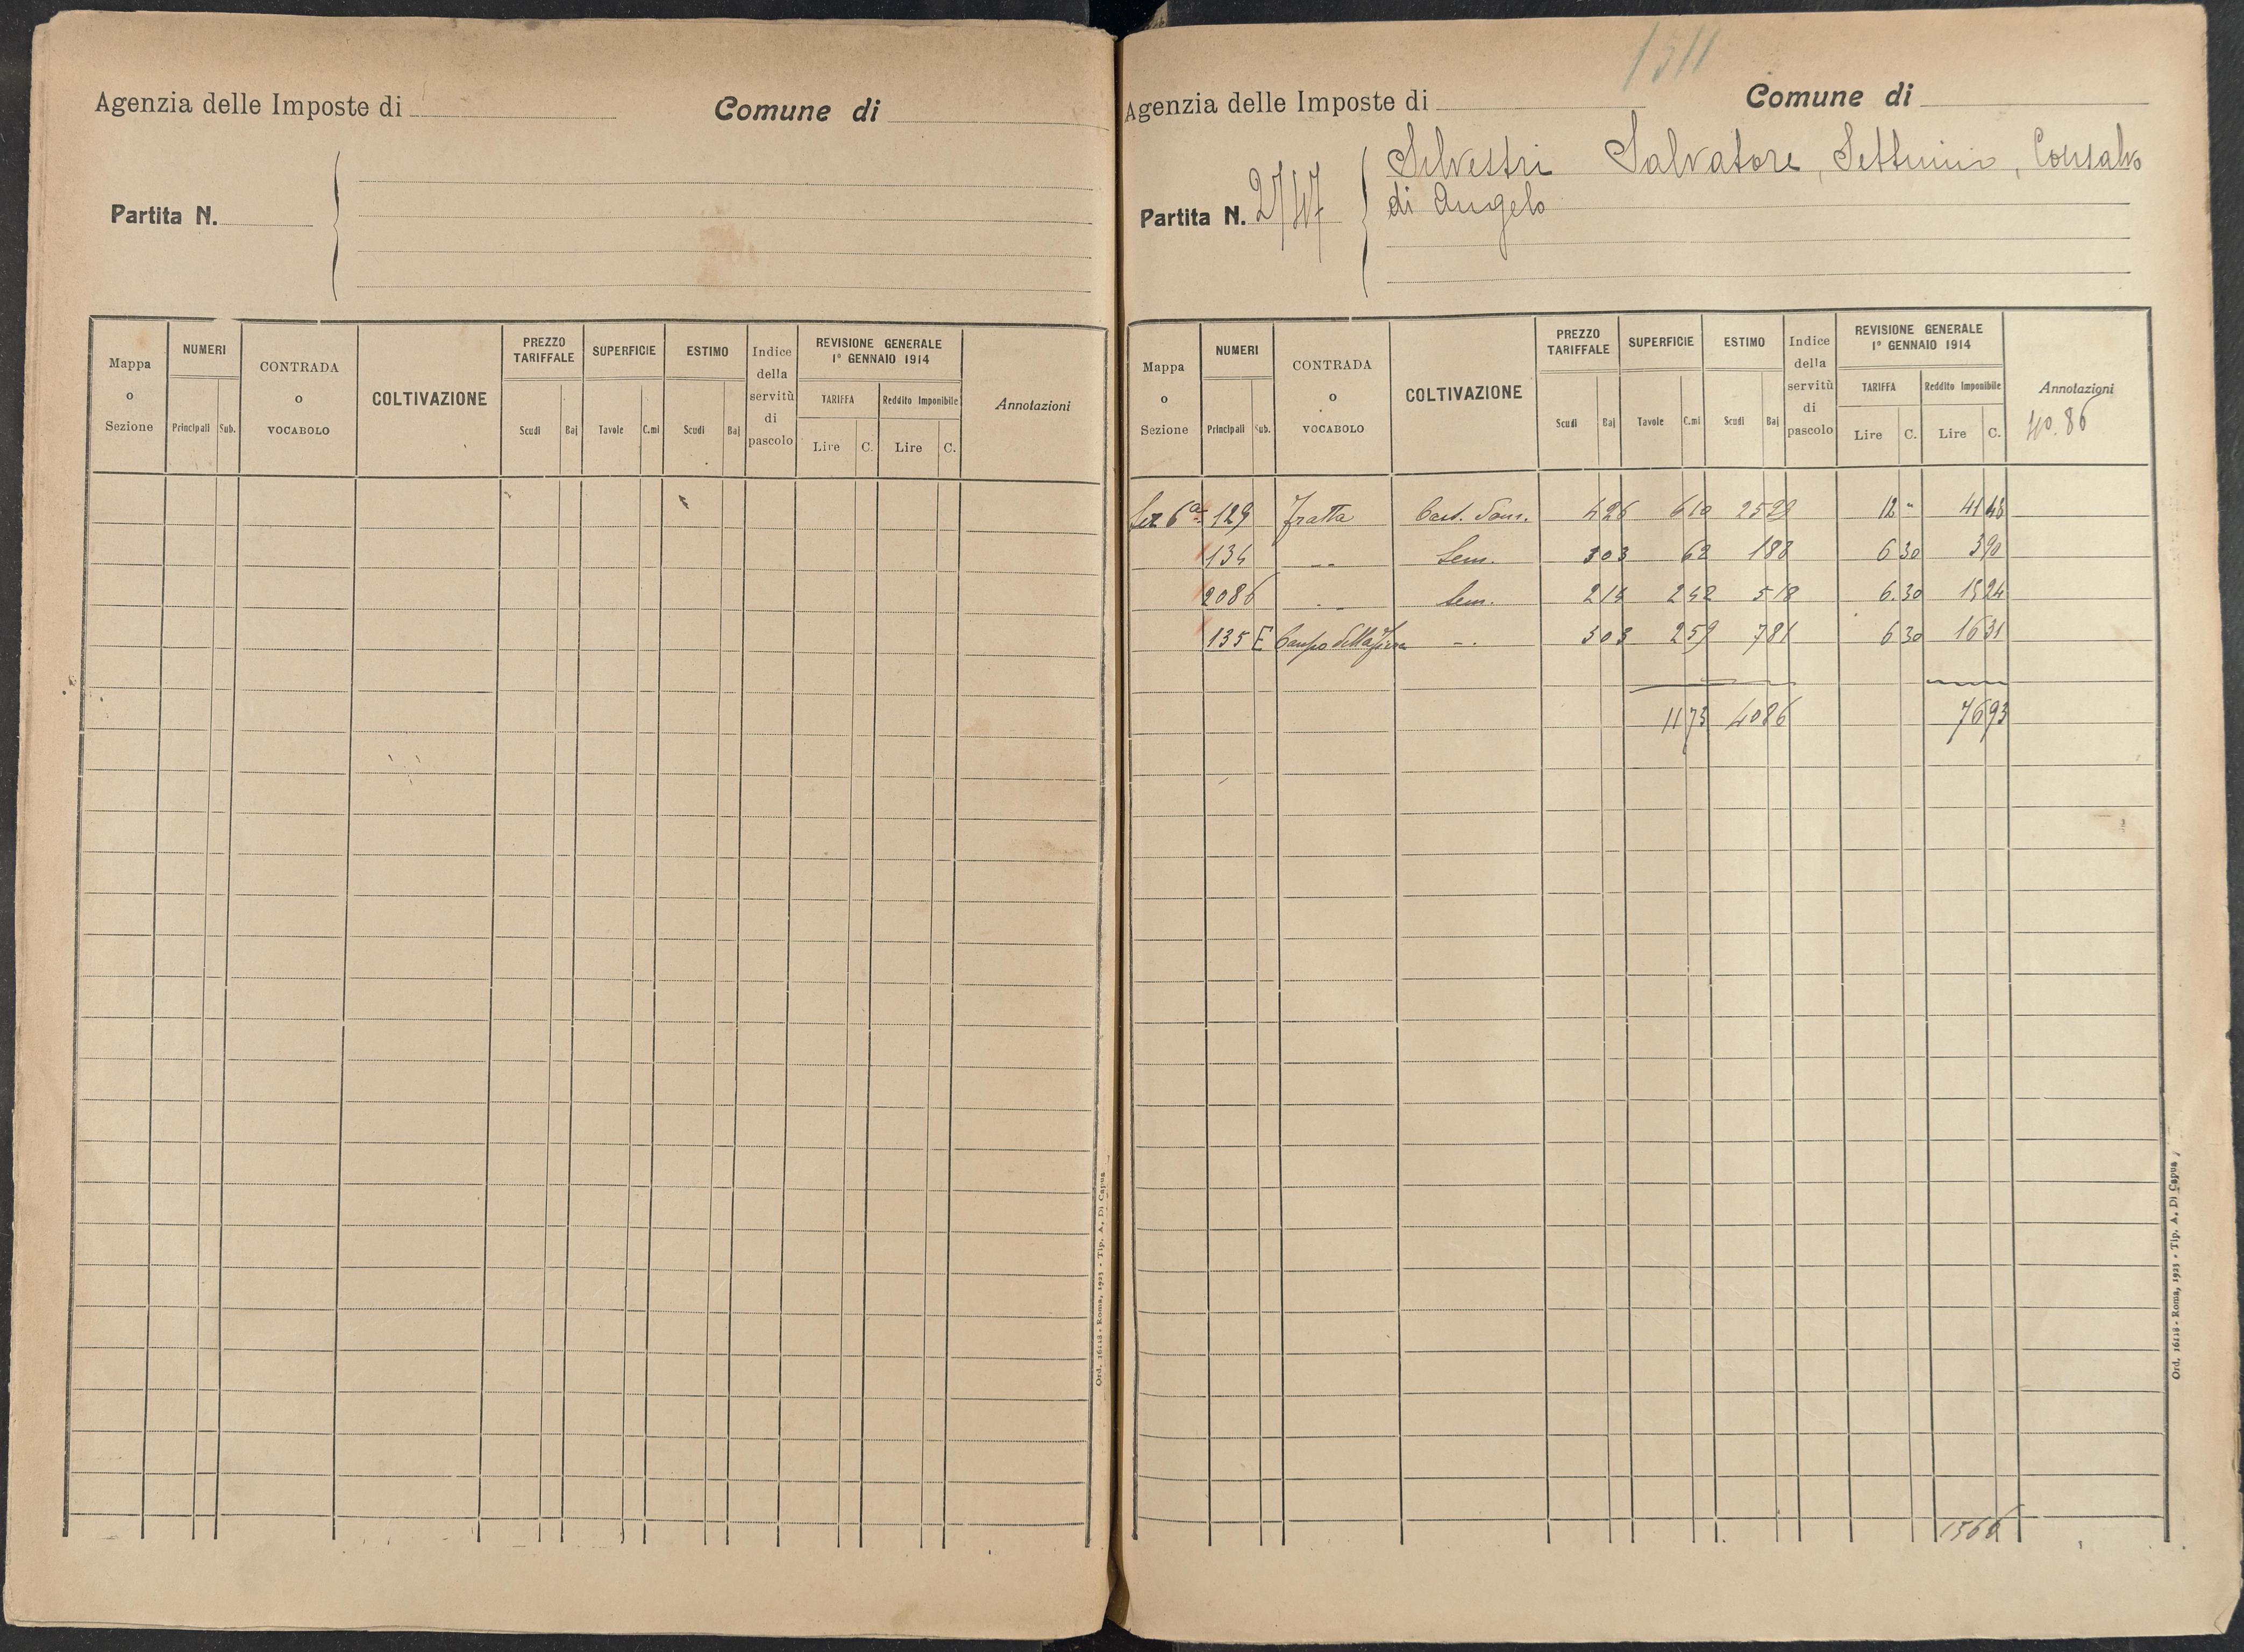 Agenzia delle Imposte di
Comune di
Partita N.
Mappa o Sezione
NUMERI
Principali Sub.
CONTRADA o VOCABOLO
COLTIVAZIONE
PREZZO TARIFFALE
Scudi Baj
SUPERFICIE
Tavole C.mi
ESTIMO
Scudi Baj
Indice della servitù di pascolo
REVISIONE GENERALE
1° GENNAIO 1914
TARIFFA
Lire C.
Reddito Imponibile
Lire C.
Annotazioni
Ord. 16118 - Roma, 1923 - Tip. A. Di Capua
1511
Agenzia delle Imposte di
Comune di
Partita N. 2747
Silvestri Salvatore, Settimio, Consalvo
di Angelo
Mappa o Sezione
NUMERI
Principali Sub.
CONTRADA o VOCABOLO
COLTIVAZIONE
PREZZO TARIFFALE
Scudi Baj
SUPERFICIE
Tavole C.mi
ESTIMO
Scudi Baj
Indice della servitù di pascolo
REVISIONE GENERALE
1° GENNAIO 1914
TARIFFA
Lire C.
Reddito Imponibile
Lire C.
Annotazioni
40.86
Sez 6a 129 Fratta Cast. Dom. 4 26 6 10 25 99 12 " 41 48
134 " Sem. 3 03 62 1 88 6 30 3 90
2086 " Sem. 2 14 2 42 5 18 6.30 15 24
135 E Campo della Fiera " 3 03 2 59 7 81 6 30 16 31
11 73 40 86 76 93
1566
Ord. 16118 - Roma, 1923 - Tip. A. Di Capua